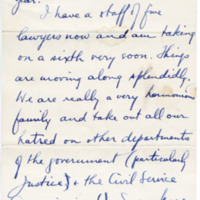 year.
I have a staff of five
lawyers now and am taking
on a sixth very soon. Things
are moving along splendidly.
We are really a very harmonious
family and take out all our
hatred on other departments
of the government (particularly
Justice) & the Civil Service